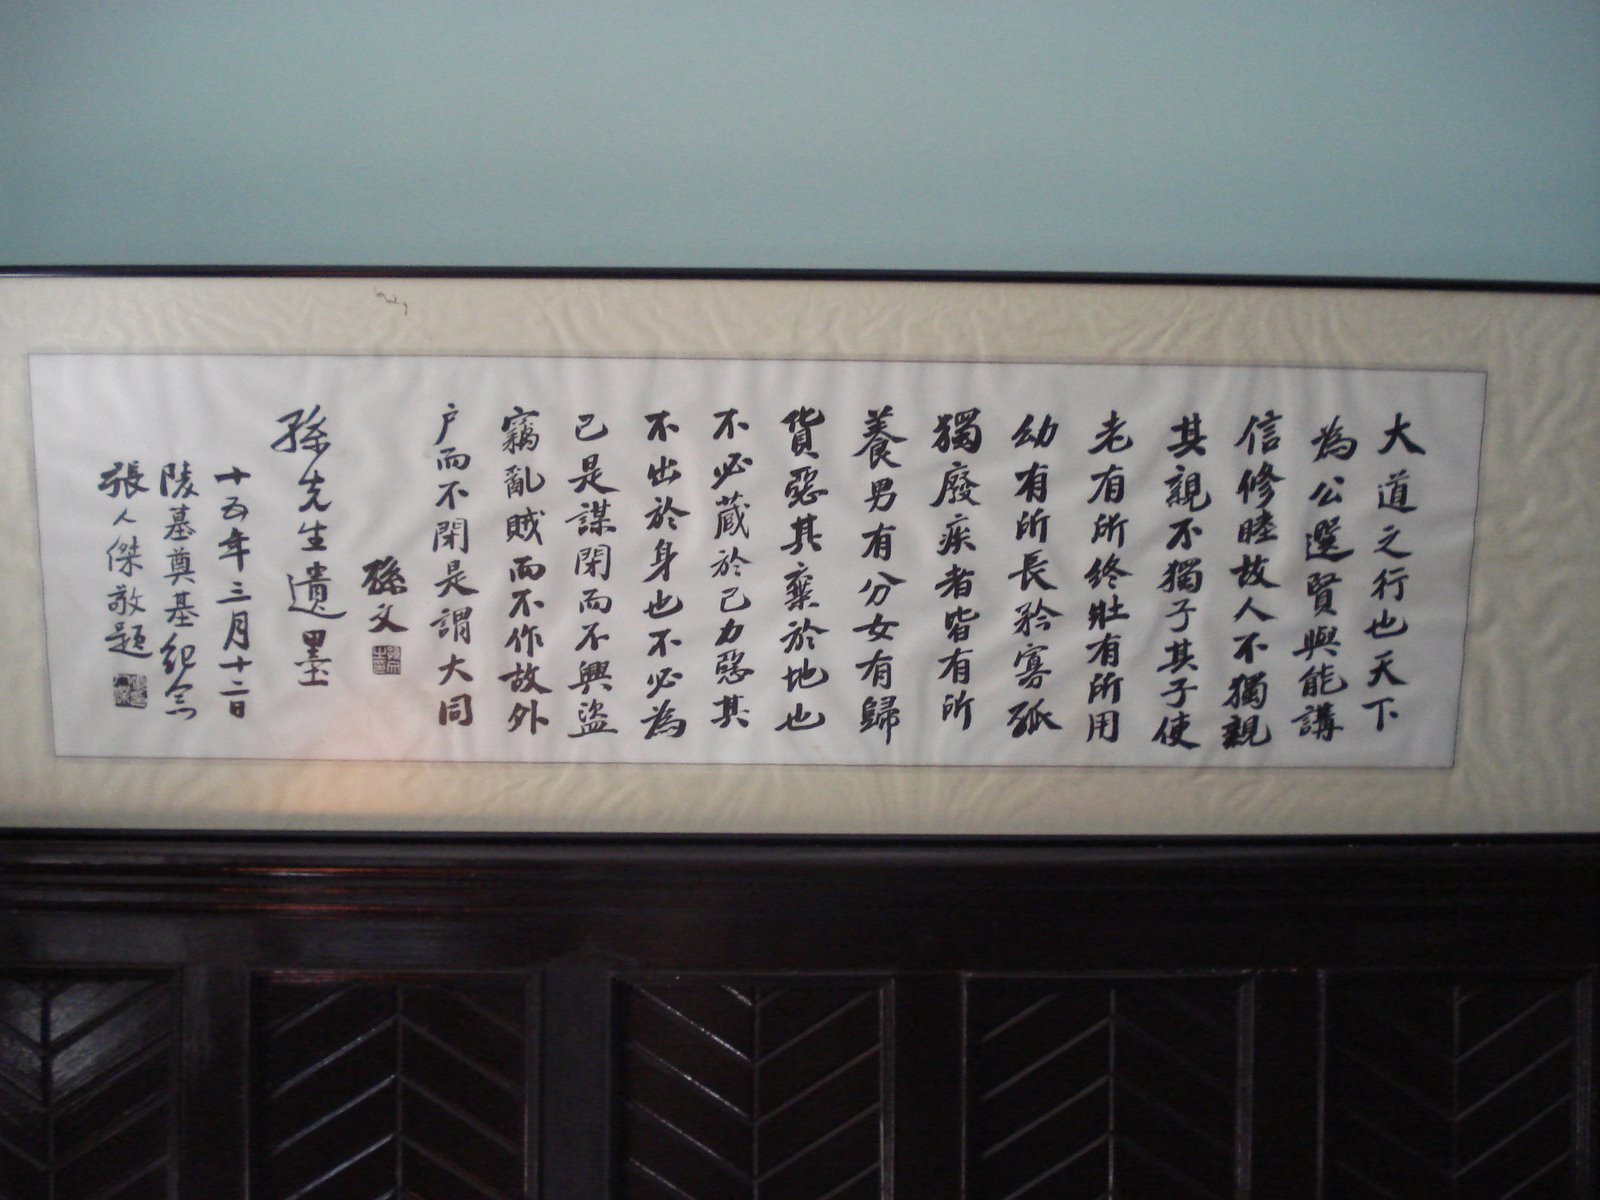 大道之行也天下
為公選賢與能講
信修睦故人不獨親
其親不獨子其子使
老有所終壯有所用
幼有所長矜寡孤
獨廢疾者皆有所
養男有分女有歸
貨惡其棄於地也
不必藏於己力惡其
不出於身也不必為
己是謀閉而不興盜
竊亂賊而不作故外
户而不閉是謂大同
孫文
孫先生遺墨
十五年三月十二日
陵墓奠基紀念
張人傑敬題